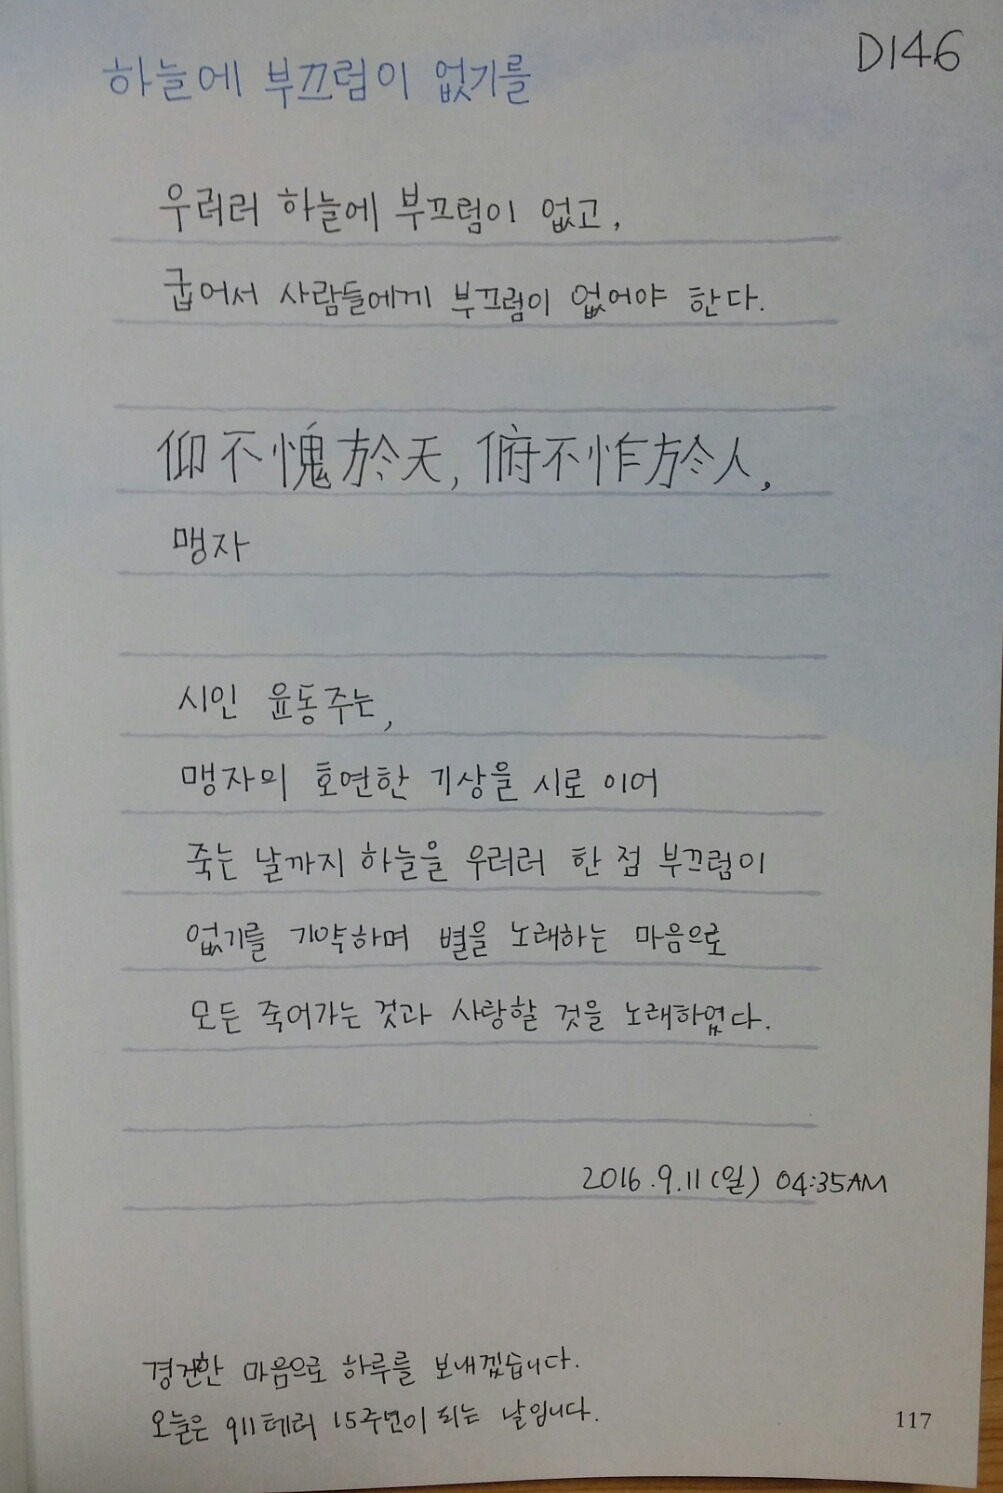 D146
하늘에 부끄럼이 없기를
우러러 하늘에 부끄럼이 없고,
굽어서 사람들에게 부끄럼이 없어야 한다.
仰不愧於天, 俯不怍於人,
맹자
시인 윤동주는,
맹자의 호연한 기상을 시로 이어
죽는 날까지 하늘을 우러러 한 점 부끄럼이
없기를 기약하며 별을 노래하는 마음으로
모든 죽어가는 것과 사랑할 것을 노래하였다.
2016.9.11(일) 04:35AM
경건한 마음으로 하루를 보내겠습니다.
오늘은 911테러 15주년이 되는 날입니다.
117